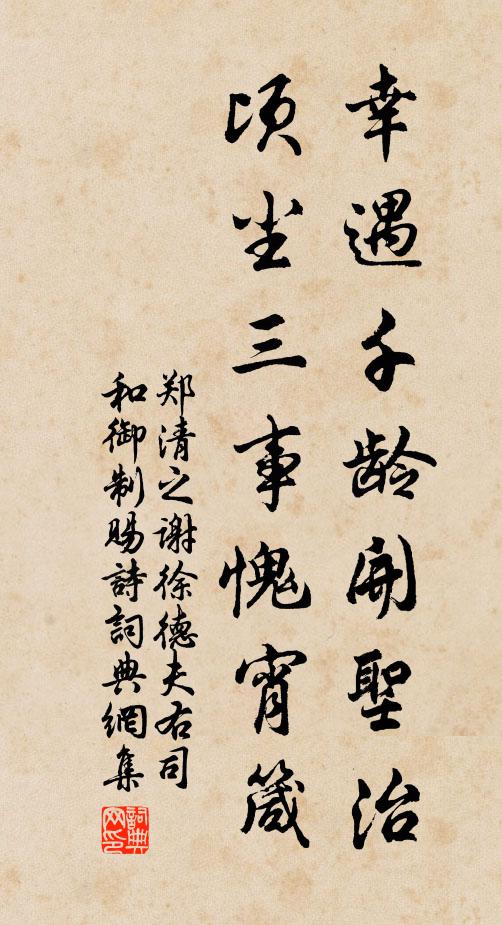 幸遇千龄开聖治
顷坐三事愧宵箴
郑清之谢徐德夫右司
和御制赐詩詞典網集
詞典网印